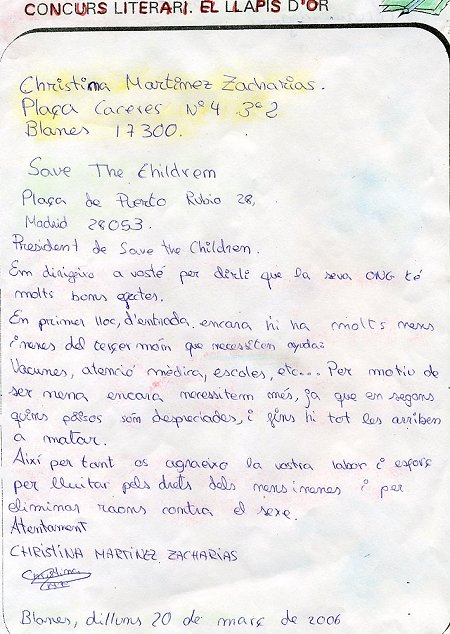 CONCURS LITERARI. EL LLAPIS D'OR
Christina Martinez Zacharias.
Plaça Caceres Nº 4 3º 2
Blanes 17300.
Save The Children
Plaça de Puerto Rubio 28,
Madrid 28053.
President de Save the Children.
Em dirigeixo a vostè per dirli que la seva ONG té
molts bons efectes.
En primer lloc, d'entrada, encara hi ha molts nens
i nenes del tercer món que necessiten ajuda:
Vacunes, atenció mèdica, escoles, etc... Per motiu de
ser nena encara necessitem més, ja que en segons
quins països som despreciades, i fins hi tot les arriben
a matar.
Així per tant os agraeixo la vostra labor i esforç
per lluitar pels drets dels nens i nenes i per
eliminar raons contra el sexe.
Atentament
CHRISTINA MARTINEZ ZACHARIAS
Blanes, dilluns 20 de març de 2006